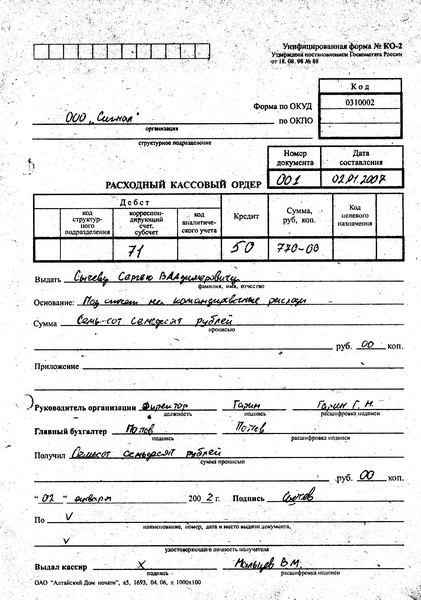 Унифицированная форма № КО-2
Утверждена постановлением Госкомстата России
от 18. 08. 98 № 88
Код
Форма по ОКУД 0310002
ООО „Сигнал" по ОКПО
организация
структурное подразделение
Номер документа Дата составления
РАСХОДНЫЙ КАССОВЫЙ ОРДЕР 001 02.01.2007
Дебет Кредит Сумма, руб, коп. Код целевого назначения
код структурного подразделения корреспондирующий счет, субсчет код аналитического учета
71 50 770-00
Выдать Сычеву Сергею Владимировичу
фамилия, имя, отчество
Основание: Под отчет на командировочные расходы
Сумма Семь-сот семьдесят рублей
прописью
руб. 00 коп.
Приложение
Руководитель организации Директор Гарин Гарин Г. Н.
должность подпись расшифровка подписи
Главный бухгалтер Попов Попов
подпись расшифровка подписи
Получил Семьсот семьдесят рублей
сумма прописью
руб. 00 коп.
"02" января 2002 г. Подпись
По V
наименование, номер, дата и место выдачи документа,
V
удостоверяющего личность получателя
Выдал кассир X Мальцев В.М.
подпись расшифровка подписи
ОАО "Алтайский Дом печати", а5, 1693, 04. 06, т. 1000х100